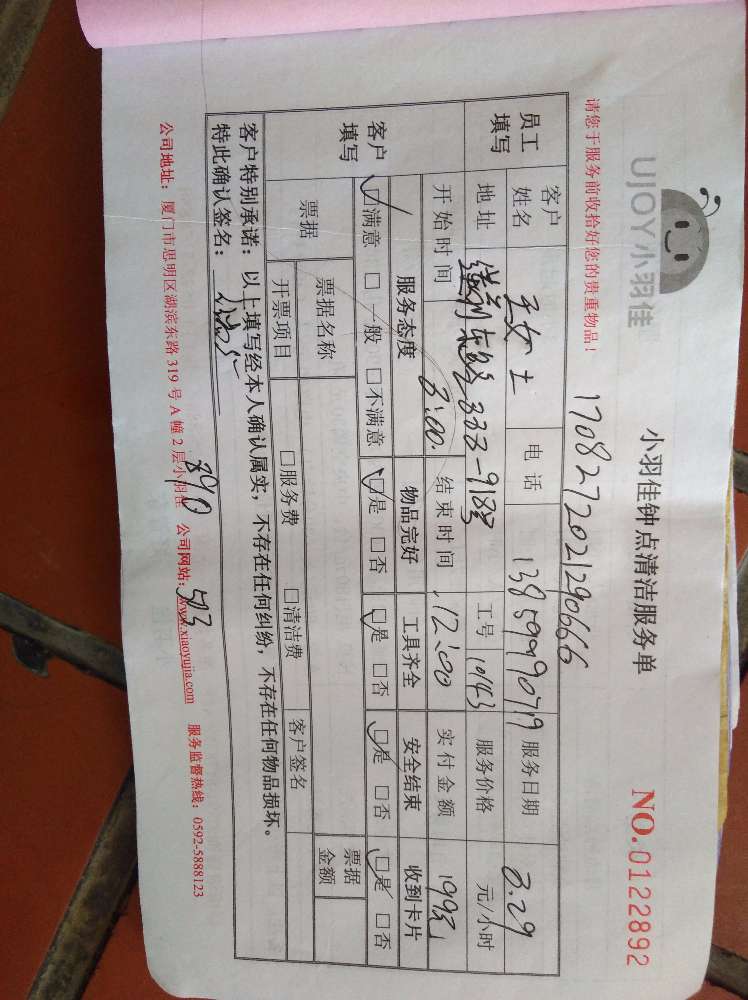 UJOY小羽佳
小羽佳钟点清洁服务单
NO.0122892
请您于服务前收拾好您的贵重物品！
1708272021290666
员工填写
客户姓名 王女士 电话 13859990719 服务日期 3.29
地址 333-918号 工号 10143 服务价格 元/小时
开始时间 3:00. 结束时间 12:00 实付金额 1993
客户填写
服务态度 物品完好 工具齐全 安全结束 收到卡片
☑满意 □一般 □不满意 ☑是 □否 ☑是 □否 ☑是 □否 ☑是 □否
票据 票据名称 票据金额
开票项目 □服务费 □清洁费 客户签名
客户特别承诺：以上填写经本人确认属实，不存在任何纠纷，不存在任何物品损坏。
特此确认签名：
890 503
公司地址：厦门市思明区湖滨东路 319 号 A 幢 2 层小羽佳 公司网站：www.xiaoyujia.com 服务监督热线：0592-5888123